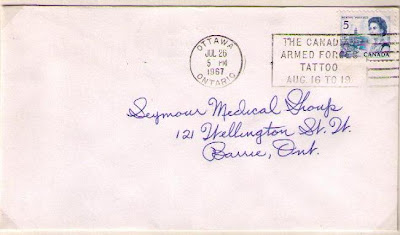 OTTAWA
JUL 26
5 PM
1967
ONTARIO
THE CANADIAN
ARMED FORCES
TATTOO
AUG. 16 TO 19
5
CANADA
Seymour Medical Group
121 Wellington St. W.
Barrie, Ont.